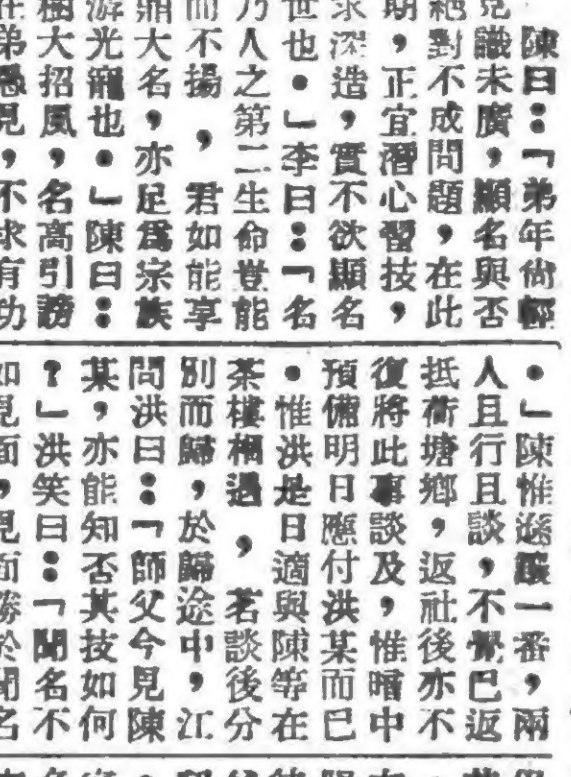 陳曰：「弟年尚輕
見識未廣，顯名與否
絕對不成問題，在此
期，正宜潛心習技，
求深造，實不欲顯名
世也。」李曰：「名
乃人之第二生命豈能
而不揚，君如能享
鼎大名，亦足爲宗族
游光寵也。」陳曰：
樹大招風，名高引謗
在弟愚見，不求有功
。」陳惟遜讓一番，兩
人且行且談，不覺已返
抵荷塘鄉，返社後亦不
復將此事談及，惟暗中
預備明日應付洪某而已
。惟洪是日適與陳等在
茶樓相遇，茗談後分
別而歸，於歸途中，江
問洪曰：「師父今見陳
某，亦能知否其技如何
？」洪笑曰：「聞名不
如見面，見面勝於聞名